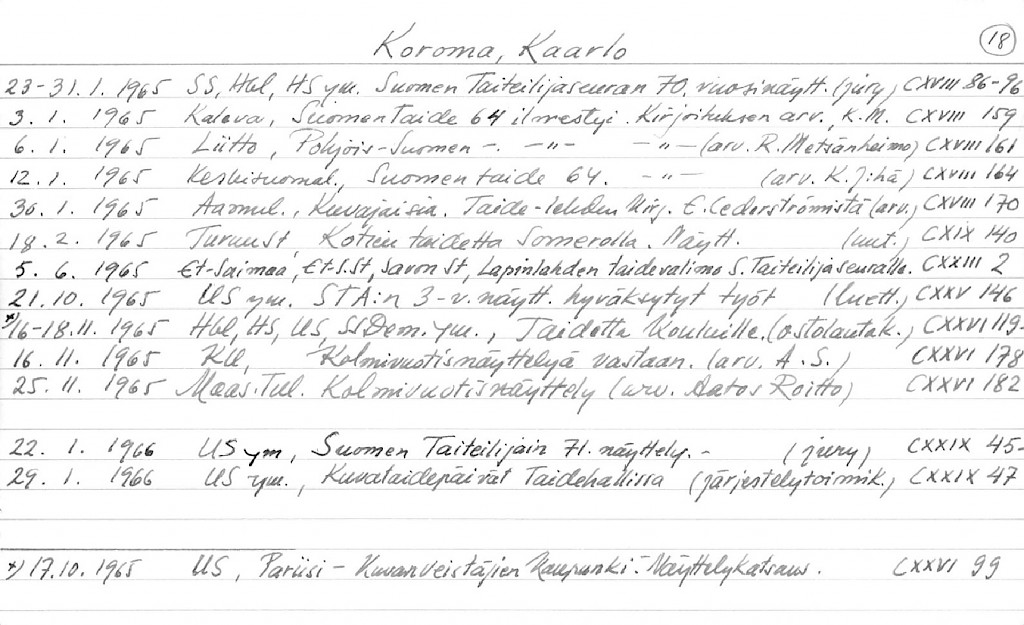 Koroma, Kaarlo
18
23-31.1.1965 SS, Hbl, HS ym. Suomen Taiteilijaseuran 70. vuosinäytt. (jury) CXVIII 86-96
3.1.1965 Kaleva, Suomen taide 64 ilmestyi. Kirjoituksen arv., K.M. CXVIII 159
6.1.1965 Liitto, Pohjois-Suomen -. -"- -"- (arv. R. Metsänheimo) CXVIII 161
12.1.1965 Keskisuomal., Suomen taide 64. -"- (arv. K. J:hä) CXVIII 164
30.1.1965 Aamul., Kuvajaisia. Taide-lehden kirj. E. Cederströmistä (arv.) CXVIII 170
18.2.1965 TurunSt, Kotien taidetta Somerolla. Näytt. CXIX 140
5.6.1965 Et-Saimaa, Et-S.St, Savon St, Lapinlahden taidevalimo S. Taiteilijaseuralle. CXXIII 2
21.10.1965 US ym. STA:n 3-v. näytt. hyväksytyt työt (luett.) CXXV 146
x) 16-18.11.1965 Hbl, HS, US, SSDem. ym., Taidetta kouluille. (ostolautak.) CXXVI 119-
16.11.1965 KU, Kolmivuotisnäyttelyä vastaan. (arv. A.S.) CXXVI 178
25.11.1965 Maas.Tul. Kolmivuotisnäyttely (arv. Aatos Roitto) CXXVI 182
22.1.1966 US ym, Suomen Taiteilijain 71. näyttely.- (jury) CXXIX 45-
29.1.1966 US ym., Kuvataidepäivät Taidehallissa (järjestelytoimik.) CXXIX 47
x) 17.10.1965 US, Pariisi - Kuvanveistäjien kaupunki. Näyttelykatsaus. CXXVI 99